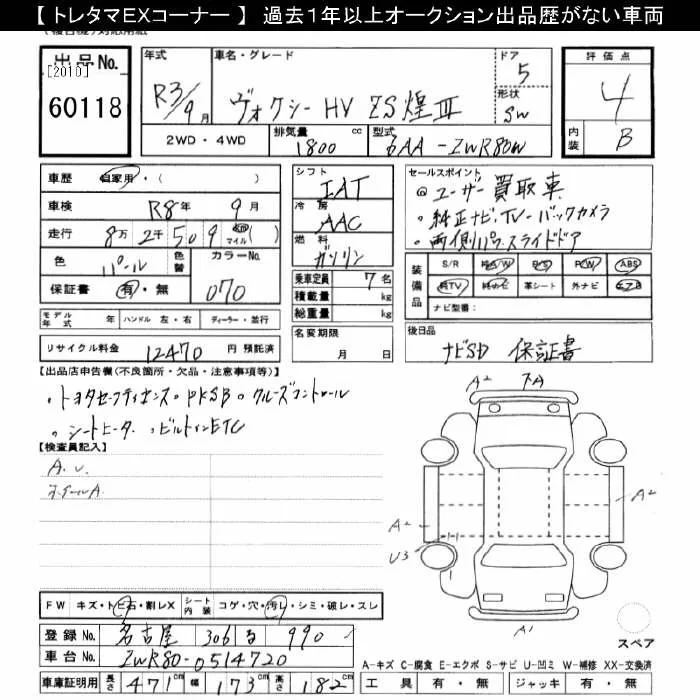 【 トレタマEXコーナー 】 過去1年以上オークション出品歴がない車両
出品No.
[2010]
60118
年式
R3/9月
車名・グレード
ヴォクシー HV ZS煌Ⅲ
ドア
5
形状
SW
2WD・4WD
排気量
1800 cc
型式
6AA-ZWR80W
評価点
4
内装
B
車歴 自家用・( )
車検 R8年 9月
走行 8万 2千 509 km マイル ( )
色 パール 色替
カラーNo.
070
保証書 有・無
モデル年式 年 ハンドル 左・右 ディーラー・並行
リサイクル料金 12470 円 預託済
シフト
IAT
冷房
AAC
燃料
ガソリン
乗車定員 7名
積載量 kg
総重量 kg
名変期限
月 日
セールスポイント
@ユーザー買取車
・純正ナビ.TV-バックカメラ
・両側パワースライドドア
装備品
S/R 純A/W P/S P/W ABS
純TV 純ナビ 革シート 外ナビ エアB
ナビ型番:
後日品
ナビSD 保証書
【出品店申告欄(不良箇所・欠品・注意事項等)】
・トヨタセーフティセンス・PKSB・クルーズコントロール
・シートヒーター・ビルトインETC
【検査員記入】
A.U.
ホイールA
A2
A2
A2
U3
A1
スペア
FW キズ・トビ石・割レX シート内装 コゲ・穴・汚レ・シミ・破レ・スレ
登録No. 名古屋 306 る 990
車台No. ZWR80-0514720
車庫証明用 長さ 471cm 幅 173cm 高さ 182cm
A-キズ C-腐食 E-エクボ S-サビ U-凹ミ W-補修 XX-交換済
工具 有・無 ジャッキ 有・無